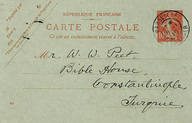 RÉPUBLIQUE FRANÇAISE
CARTE POSTALE
Ce côté est exclusivement réservé à l'adresse.
Mr. W. W. Peet
Bible House
Constantinople
Turquie